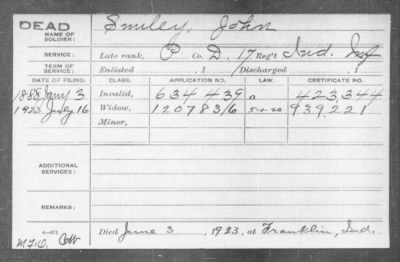 DEAD
NAME OF SOLDIER: Smiley, John
SERVICE: Late rank, P Co. D, 17 Reg't Ind. Inf
TERM OF SERVICE: Enlisted , 1 Discharged , 1
DATE OF FILING. CLASS. APPLICATION NO. LAW. CERTIFICATE NO.
1888 Jany 3 Invalid, 634 439 a 423,344
1923 July 16 Widow, 1207836 5-1-20 939,221
Minor,
ADDITIONAL SERVICES:
REMARKS:
Died June 3, 1923, at Franklin, Ind.
M.F.O.